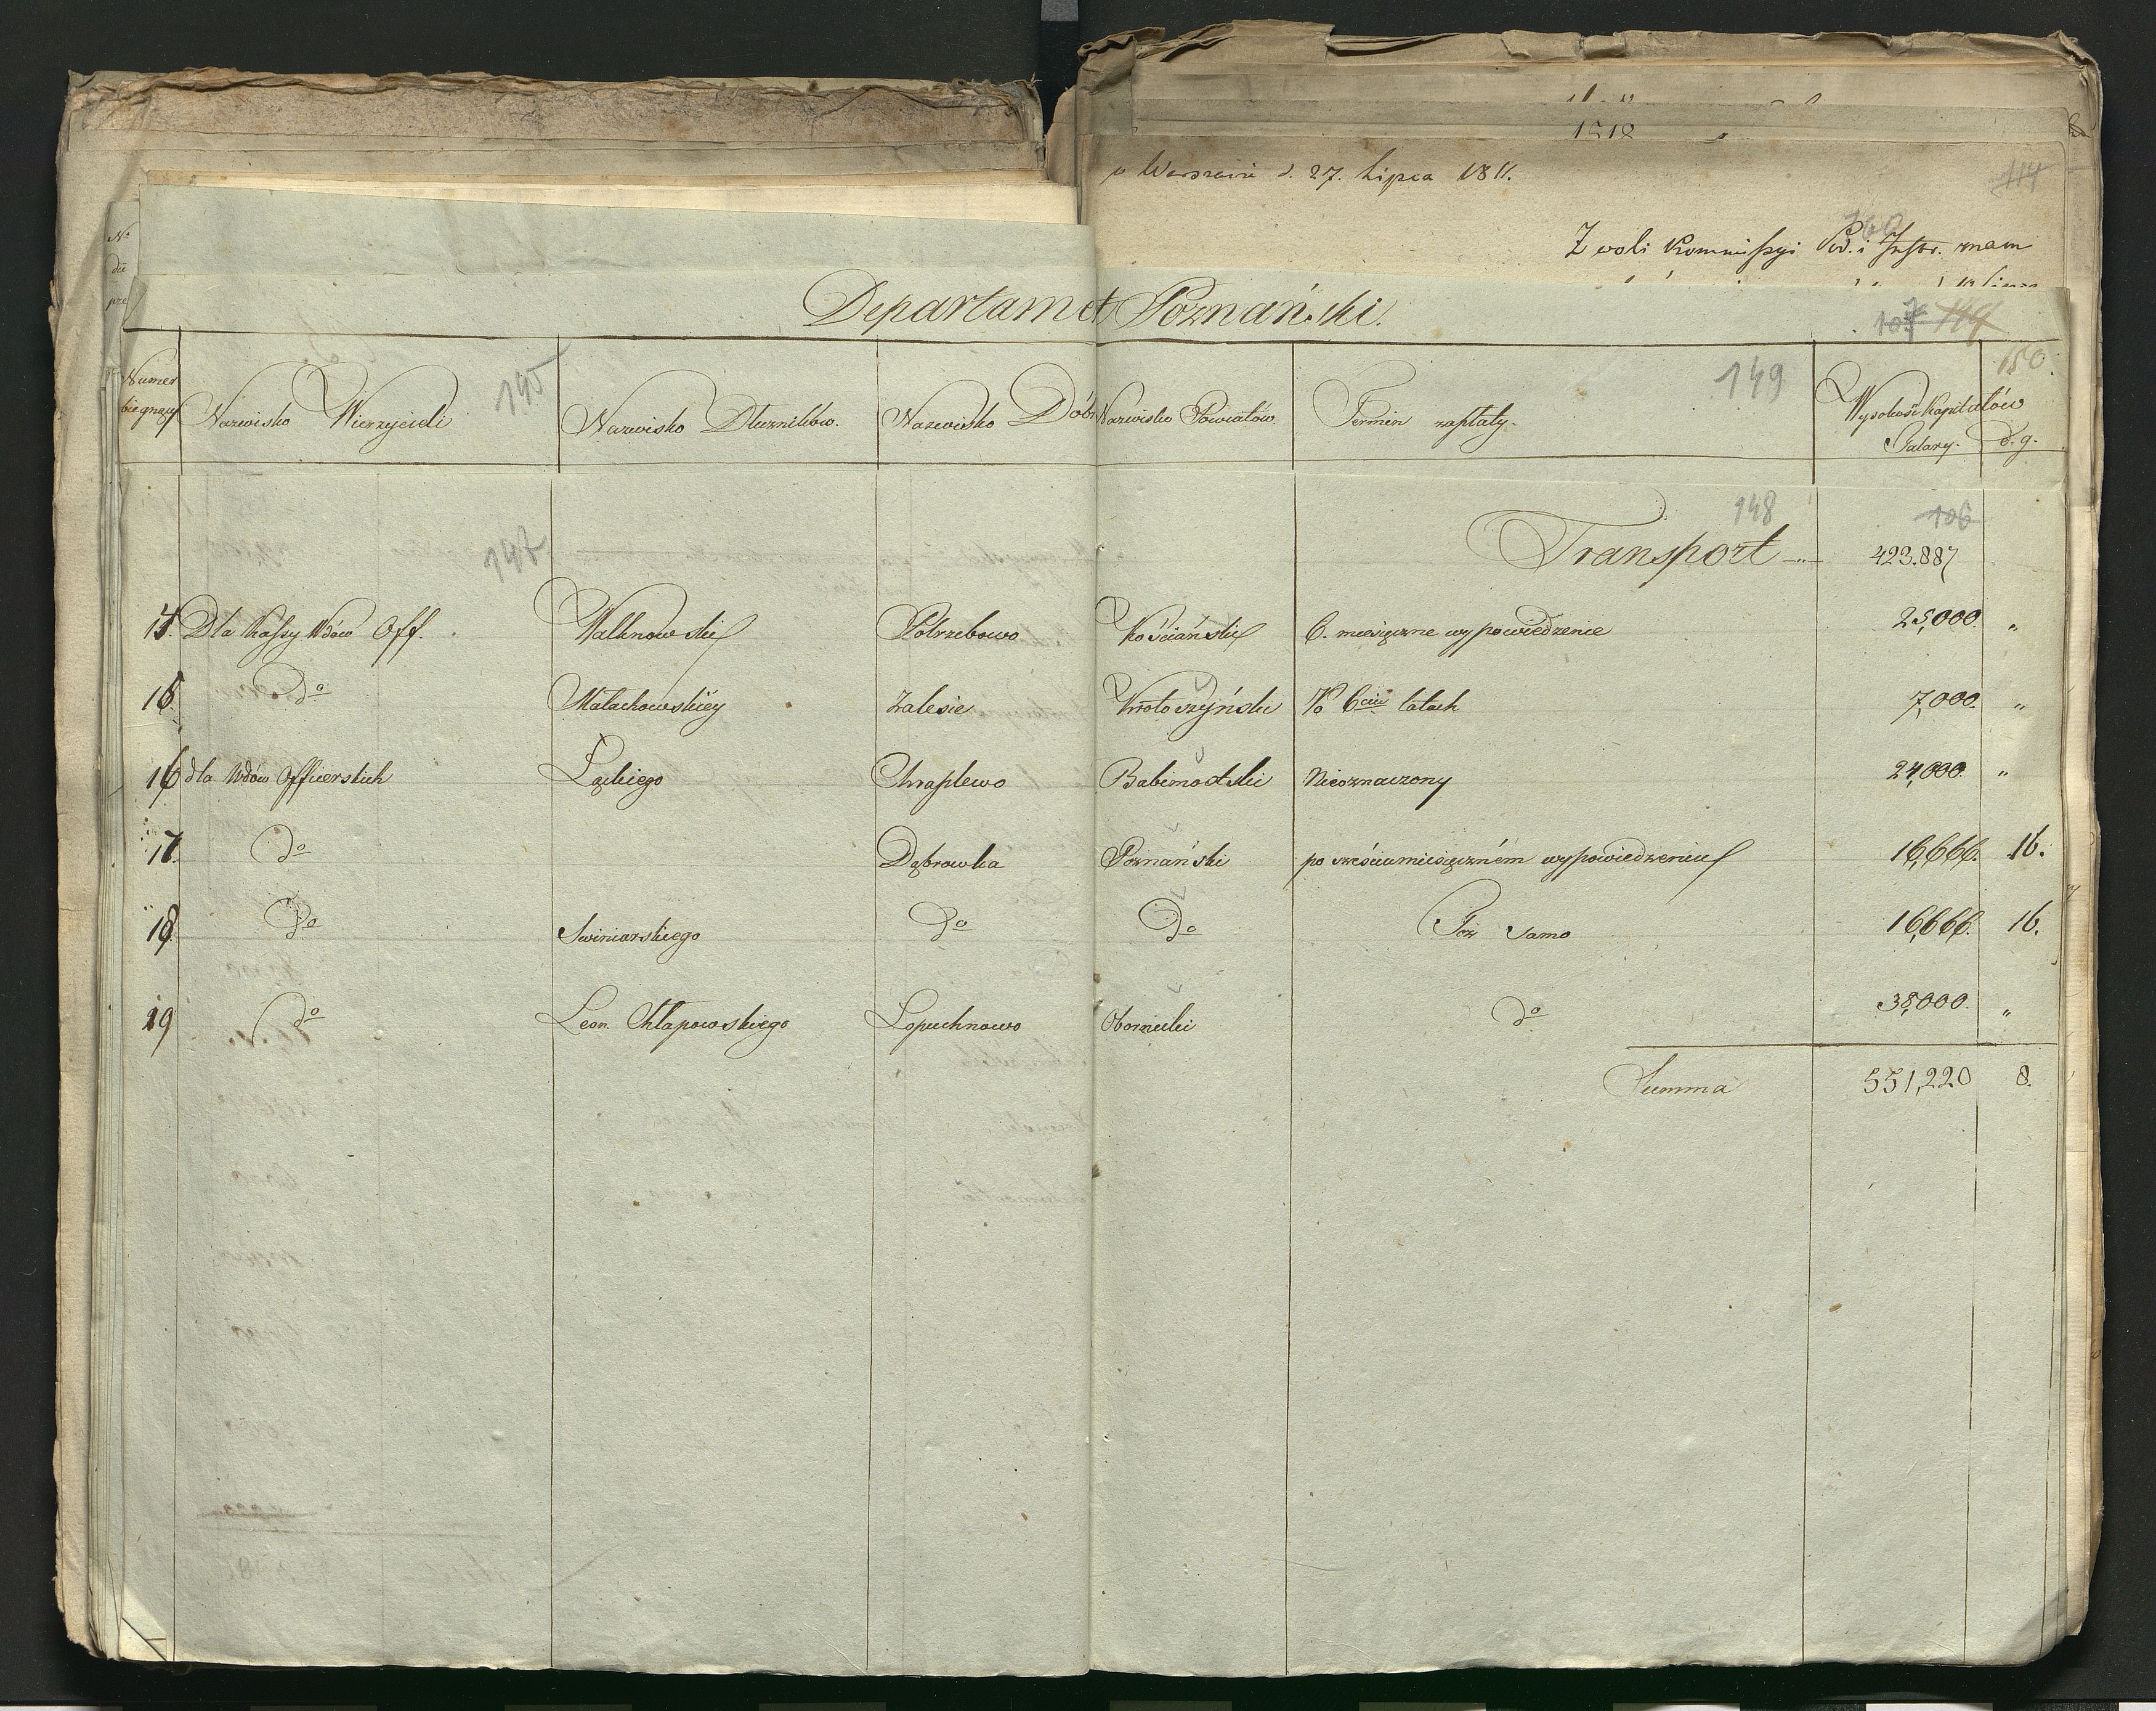 w Warszawie d. 27. Lipca 1811.
114
Z woli Kommissyi Pod. i Instr. mam
Departamet Poznański.
107 119
150.
145
149
Numer bieżący
Nazwisko Wierzycieli
Nazwisko Dłużników.
Nazwisko Dóbr
Nazwisko Powiatów
Termin zapłaty.
Wysokość Kapitałów
Talary. d. g.
147
148
106
Transport 423.887
14. Dla Kassy Wdów Off. Walknowskiey Potrzebowo Kościańskiey 6. miesięczne wypowiedzenie 25,000. "
15. do Małachowskiey Zalesie Krotoszyński Po 6ciu latach 7,000. "
16 dla Wdów Officerskich Łąckiego Chraplewo Babimostski Nieoznaczony 24,000. "
17. do Dąbrowka Poznański po sześciumiesięczném wypowiedzeniu 16,666. 16.
18. do Swiniarskiego do do Toż Samo 16,666. 16.
19 do Leon. Chłapowskiego Lopuchnowo Obornicki do 38,000. "
Summa 551,220 8.